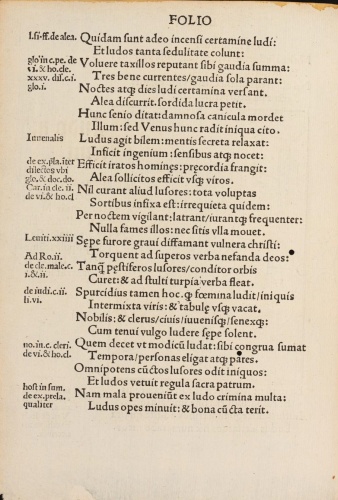 FOLIO
l.si ff.de alea. Quidam sunt adeo incensi certamine ludi:
Et ludos tanta sedulitate colunt:
glo in c.pe. de Voluere taxillos reputant sibi gaudia summa:
vi. & ho. cle. Tres bene currentes/gaudia sola parant:
xxxv. dis. c. i. Noctes atq; dies ludi certamina versant.
glo. i. Alea discurrit. sordida lucra petit.
Hunc senio ditat: damnosa canicula mordet
Illum: sed Venus hunc radit iniqua cito.
Iuuenalis Ludus agit bilem: mentis secreta relaxat:
Inficit ingenium: sensibus atq; nocet:
de ex. pla. iter Efficit iratos homines: precordia frangit:
dilectos vbi Alea sollicitos efficit vsq; viros.
gle. & doc. do.
Car. in de. ii. Nil curant aliud lusores: tota voluptas
de vi. & ho. cl Sortibus infixa est: irrequieta quidem:
Per noctem vigilant: latrant/iurantq; frequenter:
Nulla fames illos: nec sitis vlla mouet.
Leuiti. xxiiii Sępe furore graui diffamant vulnera christi:
Torquent ad superos verba nefanda deos:
Ad Ro. ii. Tanq̃ pęstiferos lusores/conditor orbis
de cle. malc. c. Curet: & ad stulti turpia verba fleat.
i. & ii.
de iudi. c. ii. Spurcidius tamen hoc. q; fœmina ludit/iniquis
li. vi. Intermixta viris: & tabulę vsq; vacat.
Nobilis: & clerus/ciuis/iuuenisq;/senexq;:
Cum tenui vulgo ludere sępe solent.
no. in. c. cleri. Quem decet vt modicũ ludat: sibi congrua sumat
de vi. & ho. cl. Tempora/personas eligat atq; pares.
Omnipotens cũctos lusores odit iniquos:
Et ludos vetuit regula sacra patrum.
host in sum. Nam mala proueniũt ex ludo crimina multa:
de ex. prela. Ludus opes minuit: & bona cũcta terit.
qualiter